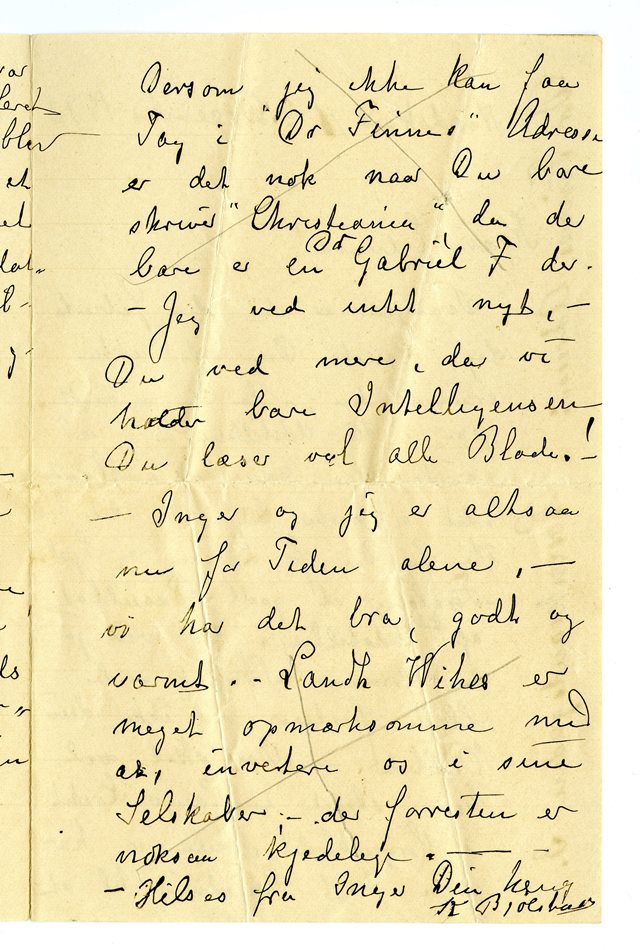 Dersom jeg ikke kan faa
Tag i "Dr Finnes" Adresse
er det nok naar Du bare
skriver "Christiania", da der
bare er en Dr Gabriel F der.
- Jeg ved intet nyt, -
Du ved mere, da vi
holder bare Intelligensen,
Du læser vel alle Blade.! -
- Inger og jeg er altsaa
nu for Tiden alene, -
vi har det bra, godt og
varmt. - Landh er
meget opmærksomme mod
os, invertere os i sine
Selskaber, - der forresten er
noksaa kjedelige. - -
- Hilses fra Inger Din
K